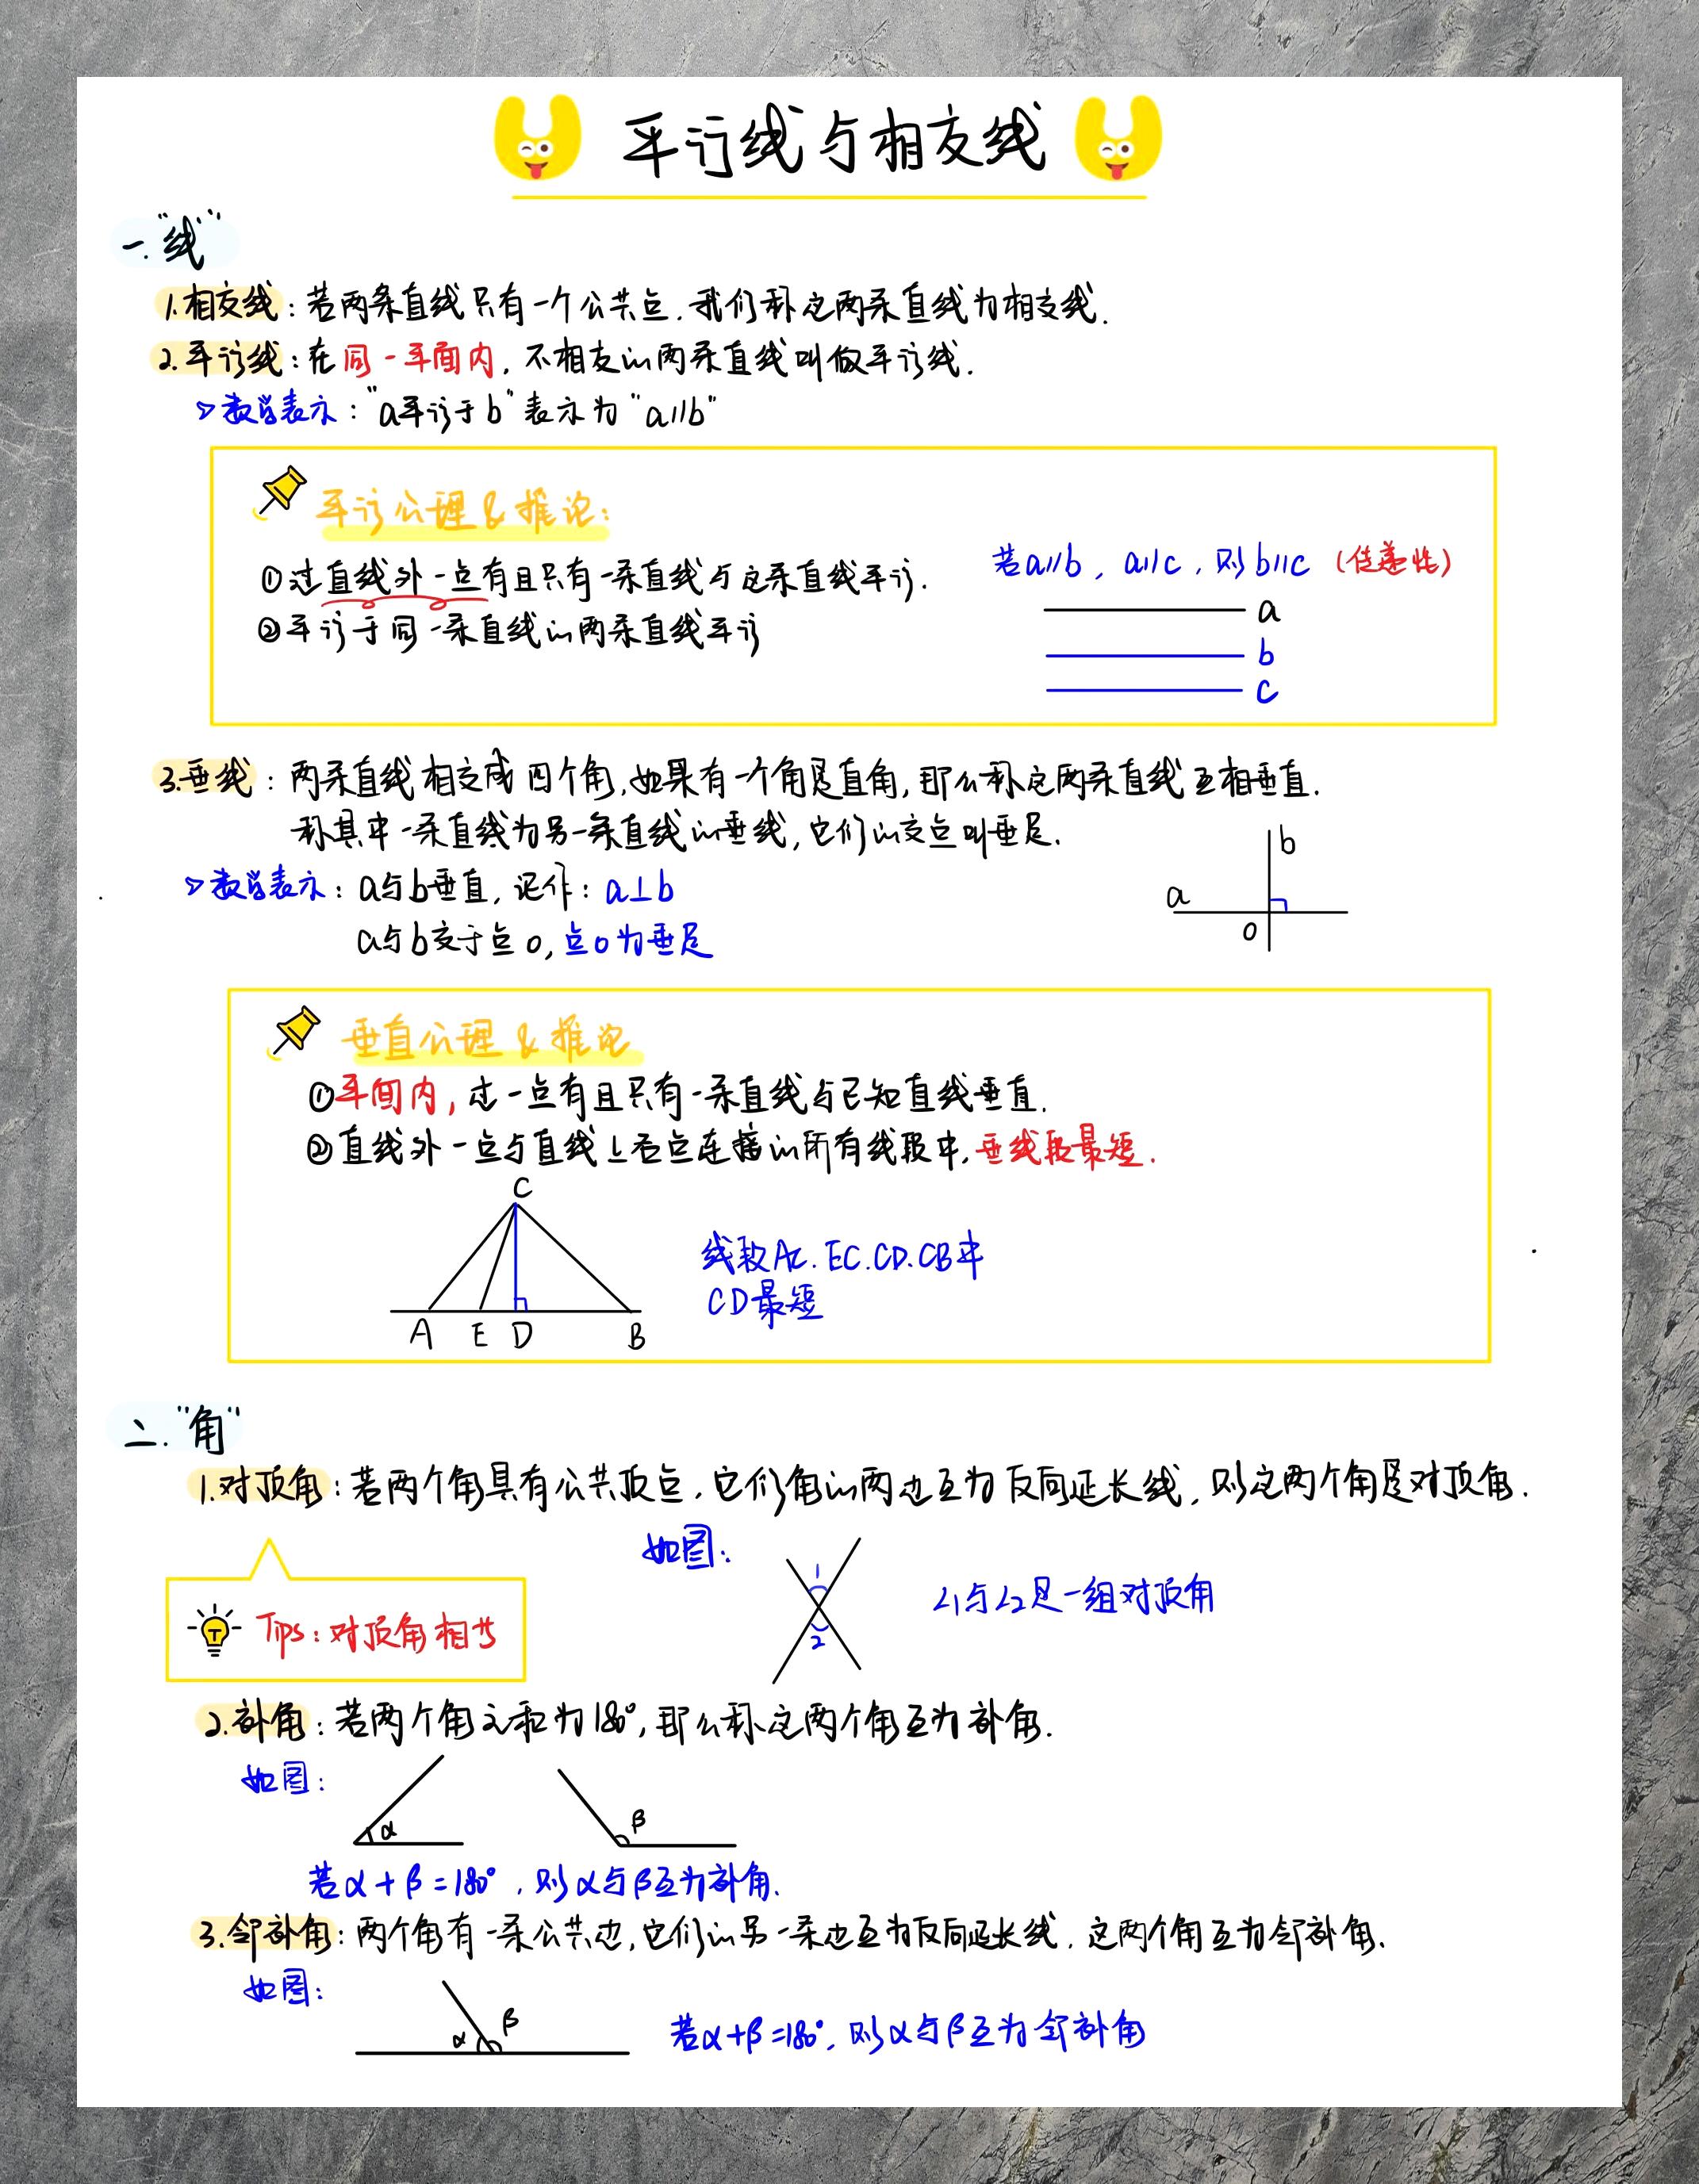 平行线与相交线
一.“线”
1.相交线：若两条直线只有一个公共点，我们称这两条直线为相交线.
2.平行线：在同一平面内，不相交的两条直线叫做平行线.
▷数学表示：“a平行于b”表示为“a//b”
平行公理&推论：
①过直线外一点有且只有一条直线与这条直线平行.
②平行于同一条直线的两条直线平行
若a//b，a//c，则b//c（传递性）
a
b
c
3.垂线：两条直线相交成四个角，如果有一个角是直角，那么称这两条直线互相垂直.
称其中一条直线为另一条直线的垂线，它们的交点叫垂足.
▷数学表示：a与b垂直，记作：a⊥b
a与b交于点o，点o为垂足
b
a
o
垂直公理&推论
①平面内，过一点有且只有一条直线与已知直线垂直.
②直线外一点与直线上各点连接的所有线段中，垂线段最短.
C
A E D B
线段AC.EC.CD.CB中
CD最短
二.“角”
1.对顶角：若两个角具有公共顶点，它们角的两边互为反向延长线，则这两个角是对顶角.
Tips：对顶角相等
如图：
1
2
∠1与∠2是一组对顶角
2.补角：若两个角之和为180°，那么称这两个角互为补角.
如图：
α
β
若α+β=180°，则α与β互为补角.
3.邻补角：两个角有一条公共边，它们的另一条边互为反向延长线，这两个角互为邻补角.
如图：
α β
若α+β=180°，则α与β互为邻补角